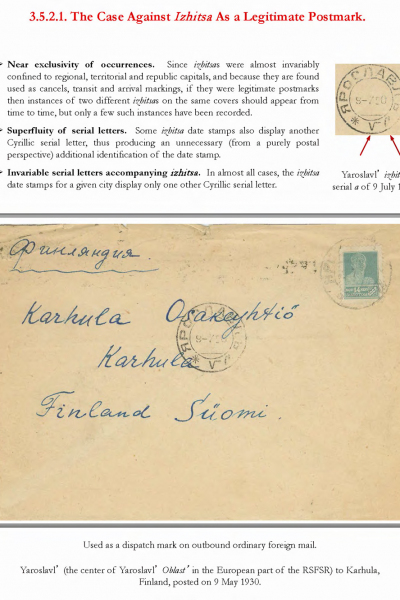 3.5.2.1. The Case Against Izhitsa As a Legitimate Postmark.
Near exclusivity of occurrences. Since izhitsas were almost invariably
confined to regional, territorial and republic capitals, and because they are found
used as cancels, transit and arrival markings, if they were legitimate postmarks
then instances of two different izhitsas on the same covers should appear from
time to time, but only a few such instances have been recorded.
Superfluity of serial letters. Some izhitsa date stamps also display another
Cyrillic serial letter, thus producing an unnecessary (from a purely postal
perspective) additional identification of the date stamp.
Invariable serial letters accompanying izhitsa. In almost all cases, the izhitsa
date stamps for a given city display only one other Cyrillic serial letter.
ЯРОСЛАВЛ
Yaroslavl'
serial a of 9 July
Финляндия.
Karhula Osakeyhtiö
Karhula
Finland Süomi.
Used as a dispatch mark on outbound ordinary foreign mail.
Yaroslavl' (the center of Yaroslavl' Oblast' in the European part of the RSFSR) to Karhula,
Finland, posted on 9 May 1930.